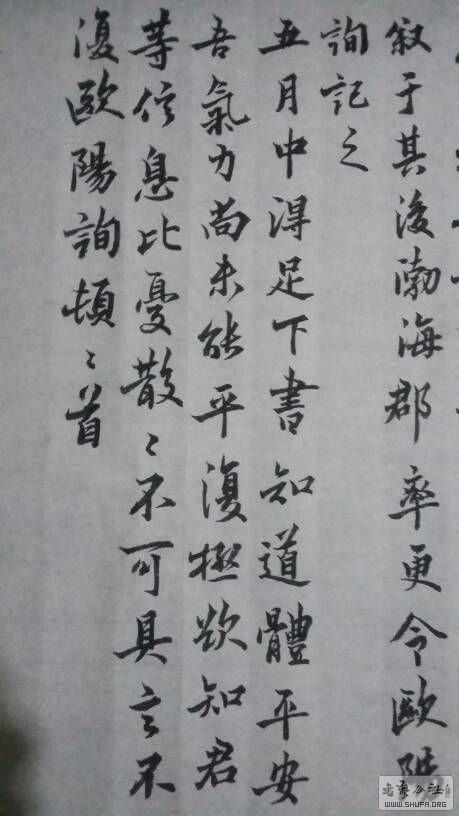 叙于其後渤海郡率更令歐陽
詢記之
五月中得足下書知道體平安
吾氣力尚未能平復極欲知君
等信息比憂散〻不可具言不
復歐陽詢頓〻首
書藝公社
WWW.SHUFA.ORG